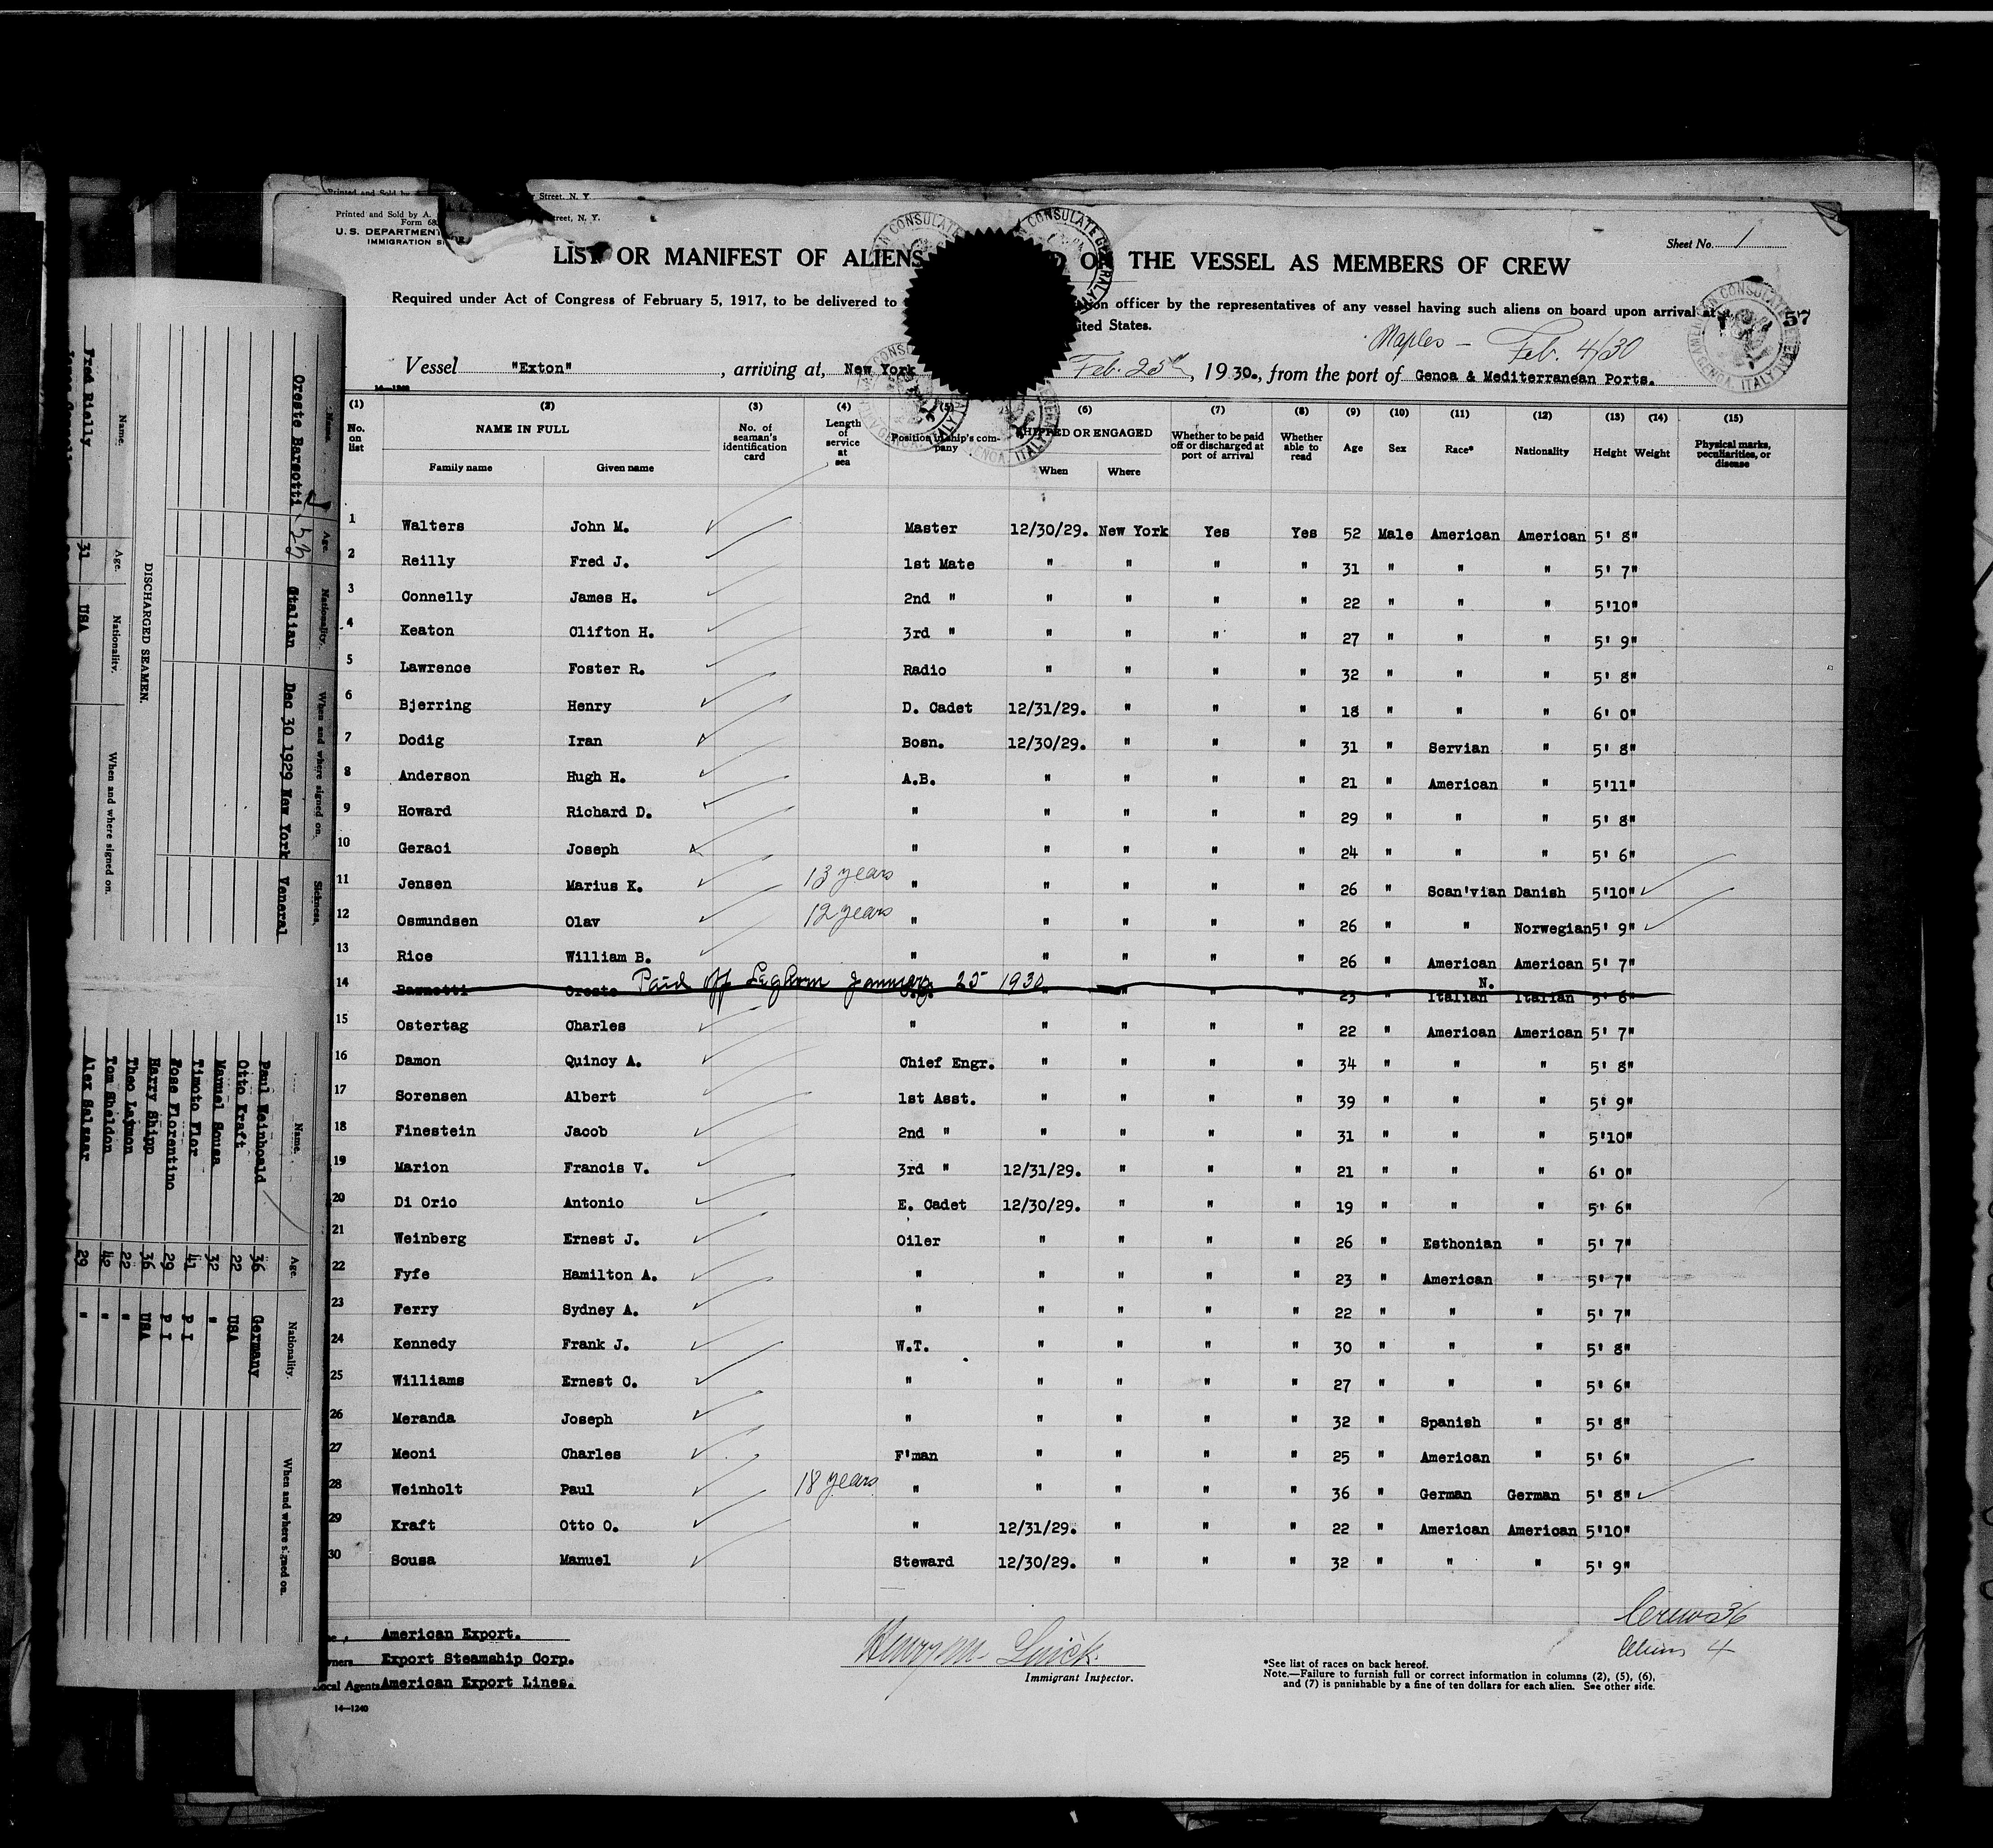 Printed and Sold by
Street, N. Y
Printed and Sold by A.
Street, N. Y.
Form 68
U.S. DEPARTMENT
IMMIGRATION S
Sheet No. 1
LIST OR MANIFEST OF ALIENS ON THE VESSEL AS MEMBERS OF CREW
Required under Act of Congress of February 5, 1917, to be delivered to officer by the representatives of any vessel having such aliens on board upon arrival at
ited States.
57
Naples — Feb. 4/30
Vessel "Exton", arriving at, New York Feb. 25th, 1930., from the port of Genoa & Mediterranean Ports.
14—1240
(1) (2) (3) (4) (5) (6) (7) (8) (9) (10) (11) (12) (13) (14) (15)
No. on list NAME IN FULL No. of seaman's identification card Length of service at sea Position in ship's company SHIPPED OR ENGAGED Whether to be paid off or discharged at port of arrival Whether able to read Age Sex Race* Nationality Height Weight Physical marks, peculiarities, or disease
Family name Given name When Where
1 Walters John M. Master 12/30/29. New York Yes Yes 52 Male American American 5' 8"
2 Reilly Fred J. 1st Mate " " " " 31 " " " 5' 7"
3 Connelly James H. 2nd " " " " " 22 " " " 5'10"
4 Keaton Clifton H. 3rd " " " " " 27 " " " 5' 9"
5 Lawrence Foster R. Radio " " " " 32 " " " 5' 8"
6 Bjerring Henry D. Cadet 12/31/29. " " " 18 " " " 6' 0"
7 Dodig Iran Bosn. 12/30/29. " " " 31 " Servian " 5' 8"
8 Anderson Hugh H. A.B. " " " " 21 " American " 5'11"
9 Howard Richard D. " " " " " 29 " " " 5' 8"
10 Geraci Joseph " " " " " 24 " " " 5' 6"
11 Jensen Marius K. 13 years " " " " " 26 " Scan'vian Danish 5'10"
12 Osmundsen Olav 12 years " " " " " 26 " " Norwegian 5' 9"
13 Rice William B. " " " " " 26 " American American 5' 7"
Paid off Leghorn January 25 1930
14 Oreste " " " " 23 " N. Italian Italian 5' 6"
15 Ostertag Charles " " " " " 22 " American American 5' 7"
16 Damon Quincy A. Chief Engr. " " " " 34 " " " 5' 8"
17 Sorensen Albert 1st Asst. " " " " 39 " " " 5' 9"
18 Finestein Jacob 2nd " " " " " 31 " " " 5'10"
19 Marion Francis V. 3rd " 12/31/29. " " " 21 " " " 6' 0"
20 Di Orio Antonio E. Cadet 12/30/29. " " " 19 " " " 5' 6"
21 Weinberg Ernest J. Oiler " " " " 26 " Esthonian " 5' 7"
22 Fyfe Hamilton A. " " " " " 23 " American " 5' 7"
23 Ferry Sydney A. " " " " " 22 " " " 5' 7"
24 Kennedy Frank J. W.T. " " " " 30 " " " 5' 8"
25 Williams Ernest C. " " " " " 27 " " " 5' 6"
26 Meranda Joseph " " " " " 32 " Spanish " 5' 8"
27 Meoni Charles F'man " " " " 25 " American " 5' 6"
28 Weinholt Paul 18 years " " " " " 36 " German German 5' 8"
29 Kraft Otto O. " 12/31/29. " " " 22 " American American 5'10"
30 Sousa Manuel Steward 12/30/29. " " " 32 " " " 5' 9"
Crew 36
Aliens 4
American Export.
Owners Export Steamship Corp.
Local Agents American Export Lines.
14—1240
Immigrant Inspector.
*See list of races on back hereof.
Note.—Failure to furnish full or correct information in columns (2), (5), (6),
and (7) is punishable by a fine of ten dollars for each alien. See other side.
Name. Age. Nationality. When and where signed on. Sickness.
Oreste Barsotti 23 Italian Dec 30 1929 New York Veneral
DISCHARGED SEAMEN.
Name. Age. Nationality. When and where signed on.
Fred Rielly 31 USA
Name. Age. Nationality. When and where signed on.
Paul Weinhoald 36 Germany
Otto Kraft 22 USA
Manuel Sousa 32 "
Timoto Flor 41 P I
Fose Florentino 29 P I
Harry Shipp 36 USA
Theo Lajmon 22 "
Tom Sheldon 42 "
Alex Salsar 29 "
AMERICAN CONSULATE GENERAL
GENOA, ITALY